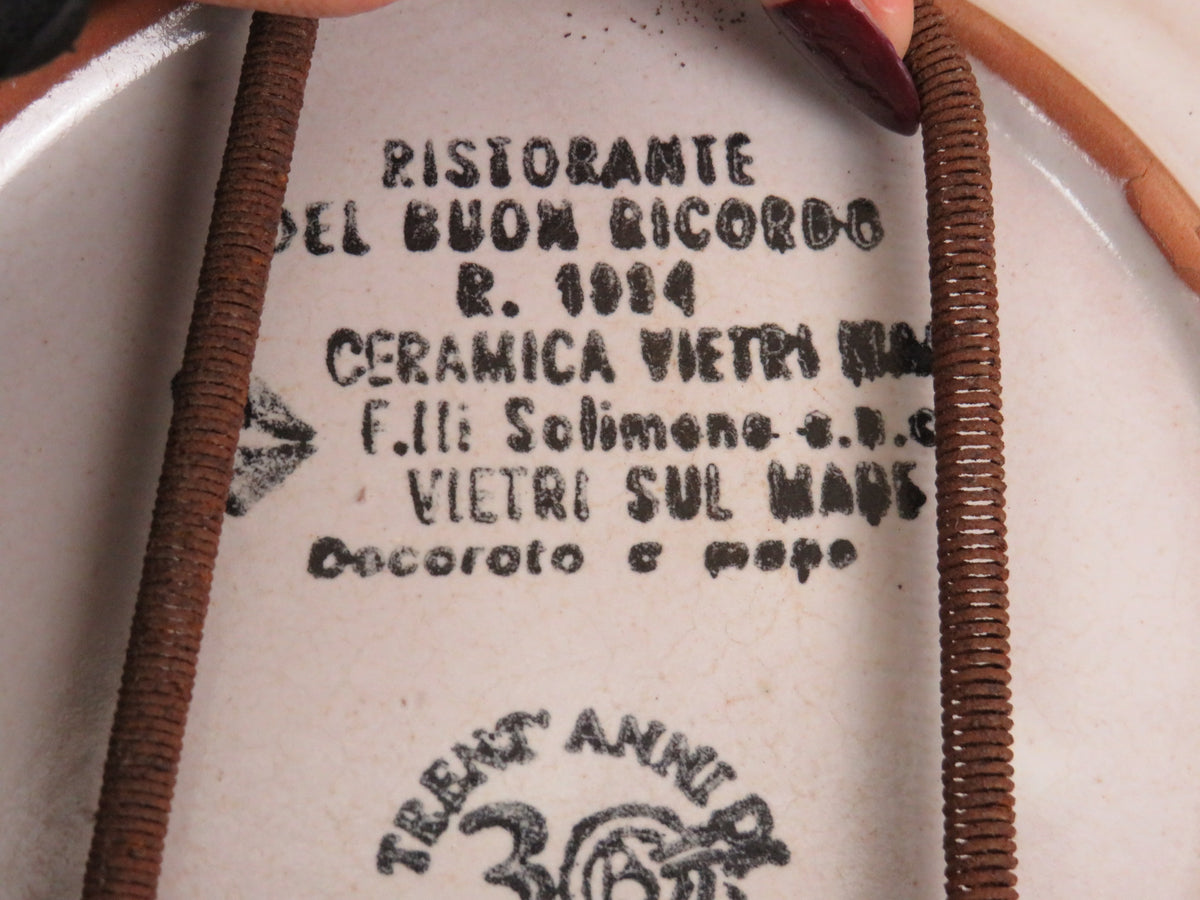 RISTORANTE
DEL BUON RICORDO
R. 1994
CERAMICA VIETRI
F.lli Solimene s.n.c
VIETRI SUL MARE
Decorato a mano
TRENT'ANNI D
30